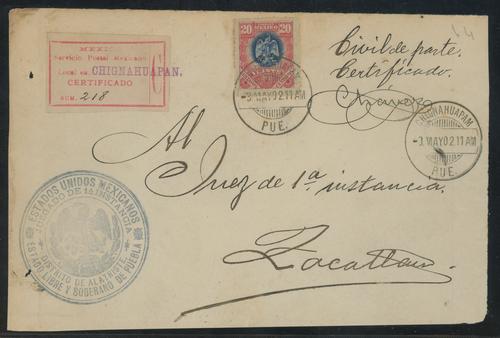 MEXICO
Servicio Postal Mexicano
Local en CHIGNAHUAPAN.
CERTIFICADO
NUM. 218
20 20
MEXICO
CHIGNAHUAPAM
-3 MAY 02 11 AM
PUE.
Civil de parte.
Certificado.
Chávez
CHIGNAHUAPAM
-3 MAY 02 11 AM
PUE.
Al
Juez de 1ª instancia.
Zacatlan.
ESTADOS UNIDOS MEXICANOS
JUZGADO DE 1A INSTANCIA
DISTRITO DE ALATRISTE
ESTADO LIBRE Y SOBERANO DE PUEBLA